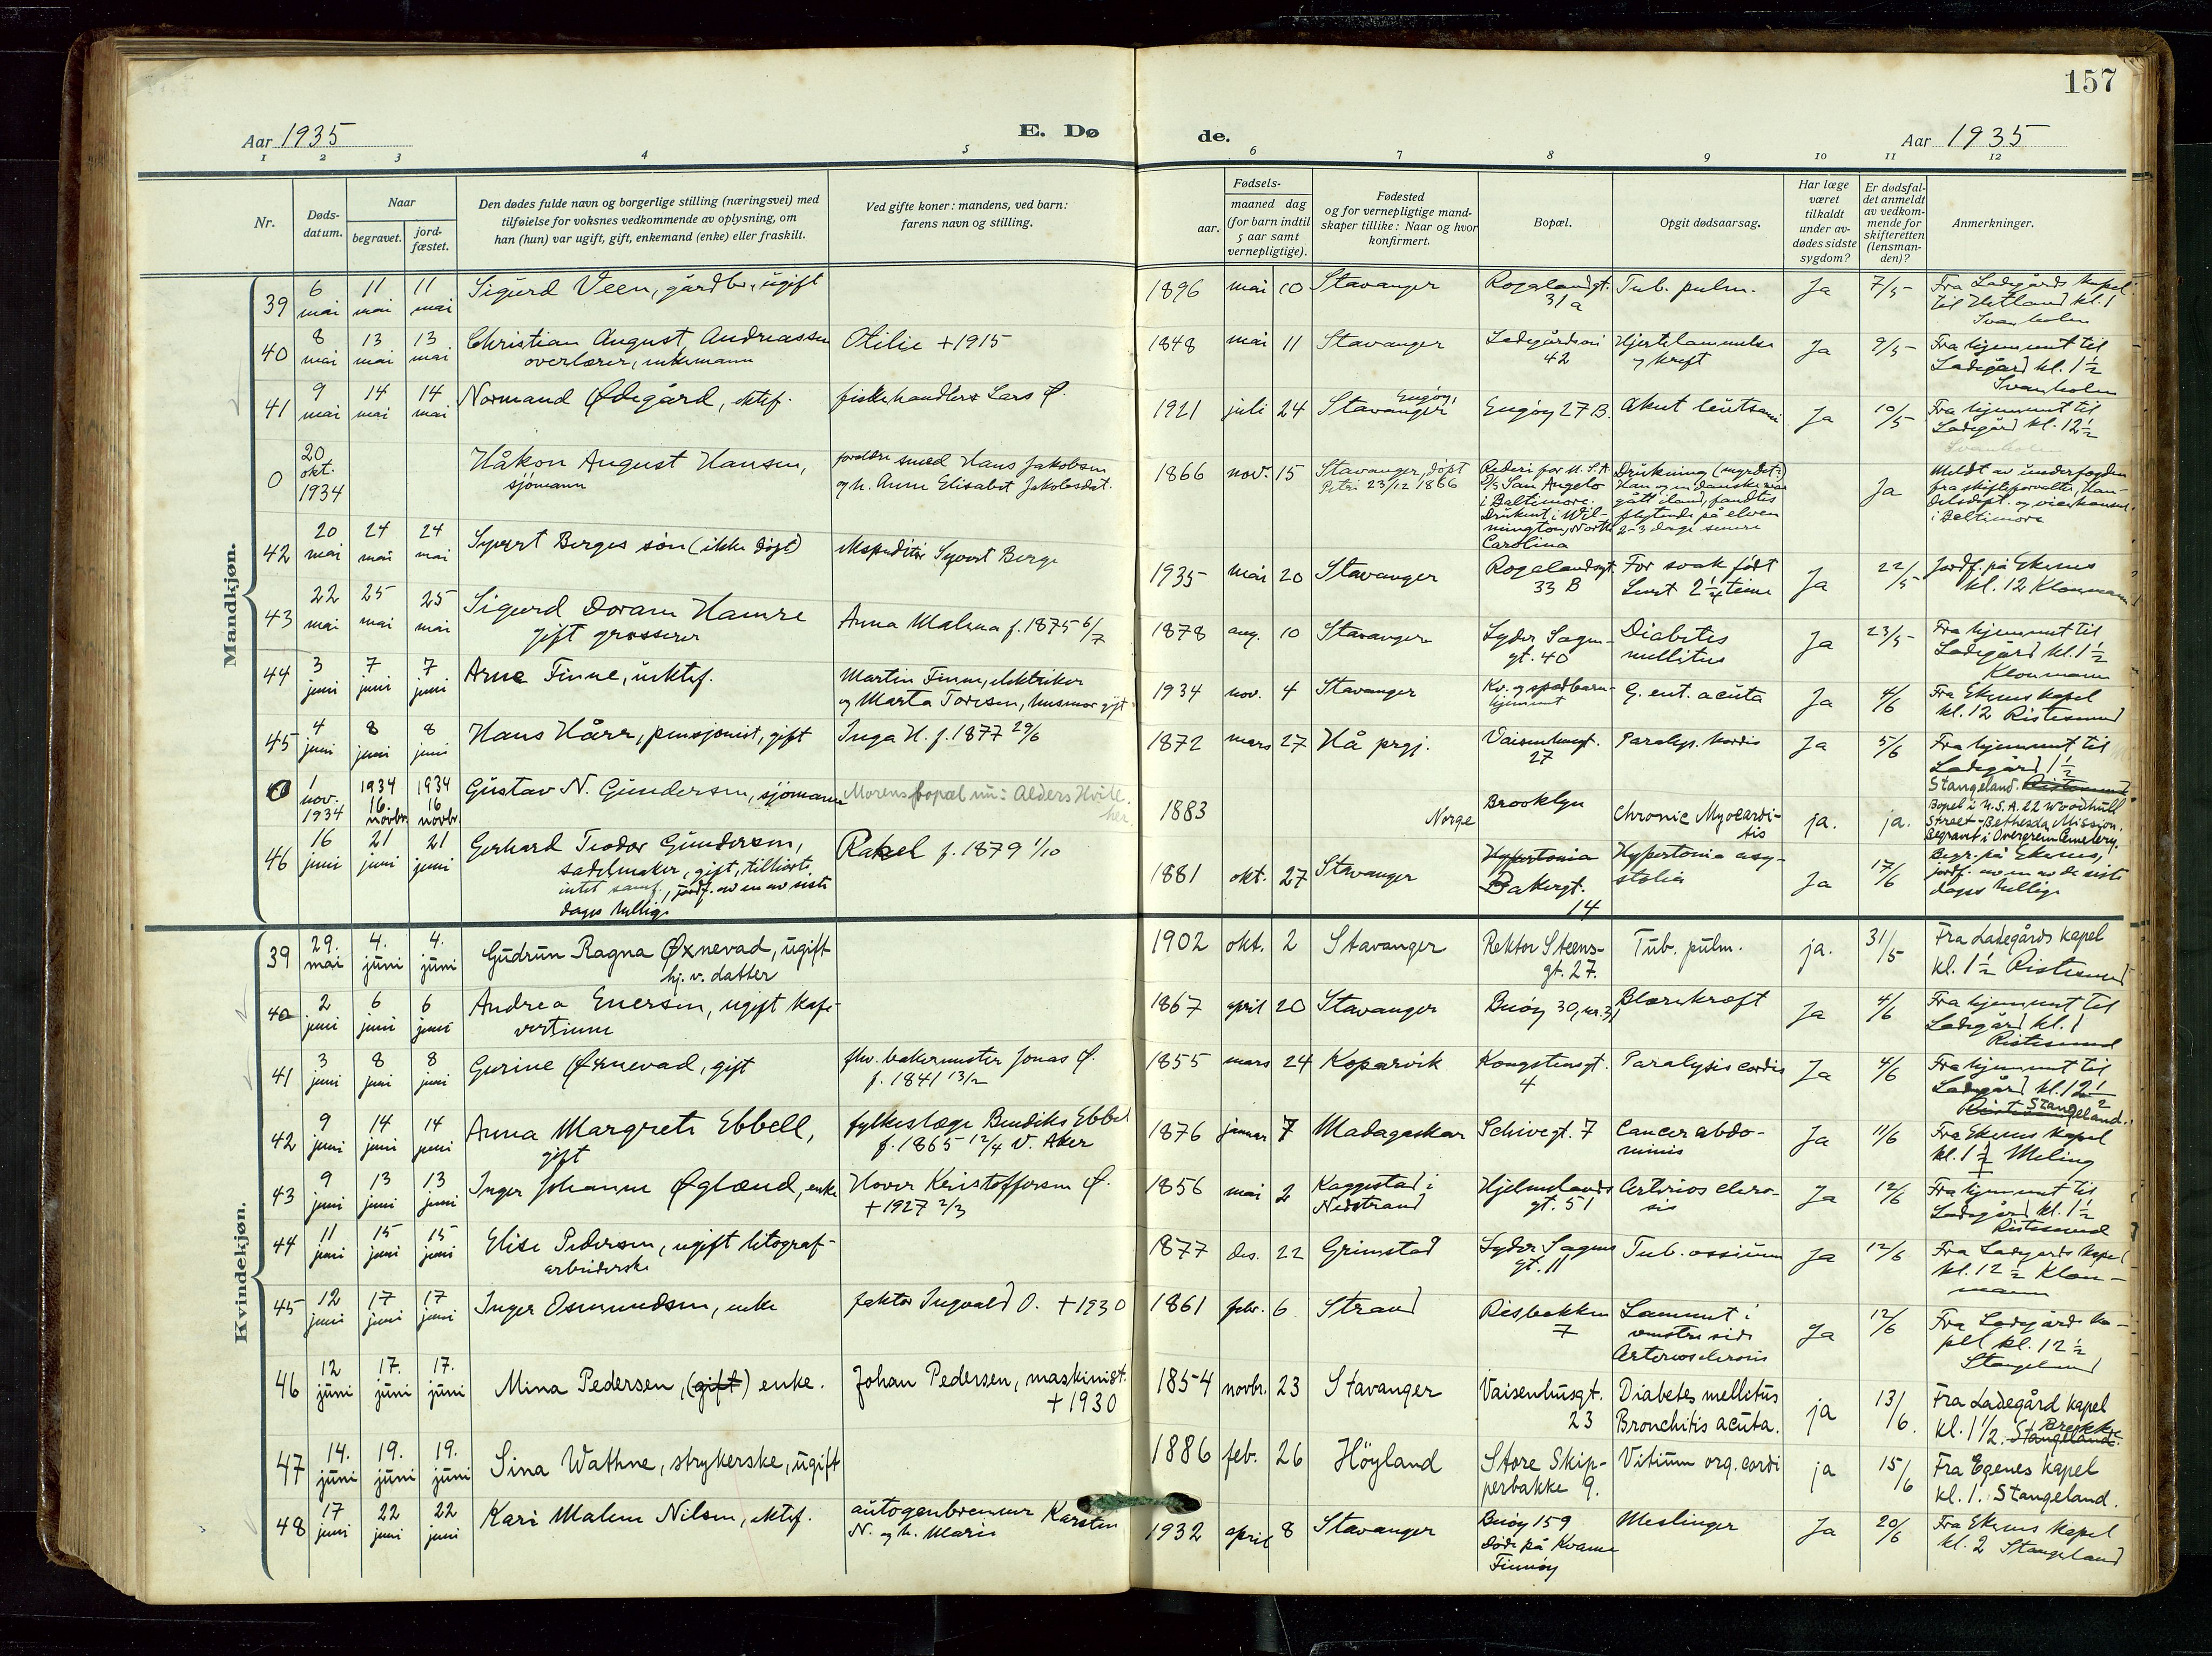 157
Aar 1935
E. Dø
de.
Aar 1935
1 2 3 4 5 6 7 8 9 10 11 12
Nr.
Døds-
datum.
Naar
begravet.
jord-
fæstet.
Den dødes fulde navn og borgerlige stilling (næringsvei) med
tilføielse for voksnes vedkommende av oplysning, om
han (hun) var ugift, gift, enkemand (enke) eller fraskilt.
Ved gifte koner: mandens, ved barn:
farens navn og stilling.
Fødsels-
aar.
maaned dag
(for barn indtil
5 aar samt
vernepligtige).
Fødested
og for vernepligtige mand-
skaper tillike: Naar og hvor
konfirmert.
Bopæl.
Opgit dødsaarsag.
Har læge
været
tilkaldt
under av-
dødes sidste
sygdom?
Er dødsfal-
det anmeldt
av vedkom-
mende for
skifteretten
(lensman-
den)?
Anmerkninger.
Mandkjøn.
39 6 mai 11 mai 11 mai Sigurd Veen, gårdbr., ugift
1896 mai 10 Stavanger Rogalandgt. 31a Tub. pulm. Ja 7/5 Fra Ladegårds kapel
til Hetland kl. 1
Svanholm
40 8 mai 13 mai 13 mai Christian August Andreassen
overlærer, enkemann
Otilie +1915
1848 mai 11 Stavanger Ladegårdsvei 42 Hjertelammelse
og kreft Ja 9/5 Fra hjemmet til
Ladegård kl. 1½
Svanholm
41 9 mai 14 mai 14 mai Normand Ødegård, ektef.
fiskehandler Lars Ø.
1921 juli 24 Engøy, Stavanger Engøy 27 B. Akut Ja 10/5 Fra hjemmet til
Ladegård kl. 12½
Svanholm
0 20 okt. 1934 Håkon August Hansen,
sjömann
foreldre smed Hans Jakobsen
og h. Anne Elisabet Jakobsdat.
1866 nov. 15 Stavanger, døpt
Petri 23/12 1866
Rederi for U.S.A.
D/S San Angelo
i Baltimore.
Druknet i Wil-
mington, North
Carolina
Drukning
Han og en danske var
gått iland, fandtes
flytende på elven
2-3 dage senere
Ja Meldt av underfogden
fra skifteforvalter, Han-
delsdept. og visekonsul.
i Baltimore
42 20 mai 24 mai 24 mai Syvert Berges søn (ikke døpt)
ekspeditør Syvert Berge
1935 mai 20 Stavanger Rogalandsgt. 33 B For svak født
Levet 2¼ time Ja 22/5 Jordf. på Ekenes
kl. 12 Kloumann
43 22 mai 25 mai 25 mai Sigurd Doram Hamre
gift grosserer
Anna Malena f. 1875 6/7
1878 aug. 10 Stavanger Lyder Sagen-
gt. 40 Diabetes
mellitus Ja 23/5 Fra hjemmet til
Ladegård kl. 1½
Kloumann
44 3 juni 7 juni 7 juni Arne Finne, uektef.
Martin Finne, elektriker
og Marta Toresen, husmor gift
1934 nov. 4 Stavanger Kv. og spedbarn-
hjemmet G. ent. acuta Ja 4/6 Fra Ekenes kapel
kl. 12 Ristesund
45 4 juni 8 juni 8 juni Hans Hårr, pensjonist, gift
Inga H. f. 1877 29/6
1872 mars 27 Hå prgj. Vaisenhusgt. 27 Paralys. kordis Ja 5/6 Fra hjemmet til
Ladegård 1½
Stangeland. Ristesund
0 1 nov. 1934 1934 16. novbr. 1934 16 novbr. Gustav N. Gundersen, sjömann
Morens bopæl nu: Alders Hvile her
1883 Norge Brooklyn Chronic Myocardi-
tis ja. ja. Bopel i U.S.A. 22 Woodhull
Street - Bethesda Mission.
Begravet i Overgreen Cemetery.
46 16 juni 21 juni 21 juni Gerhard Teodor Gundersen,
sadelmaker, gift, tilhørt.
intet samf., jordf. av en av siste
dages hellige
Rakel f. 1879 1/10
1881 okt. 27 Stavanger Hypertonia
Bakergt.
14 Hypertonia asy-
stolia Ja 17/6 Begr. på Ekenes,
jordf. av en av de siste
dages hellige
Kvindekjøn.
39 29. mai 4. juni 4. juni Gudrun Ragna Øxnevad, ugift
hj. v. datter
1902 okt. 2 Stavanger Rektor Steens-
gt. 27. Tub. pulm. ja. 31/5 Fra Ladegårds kapel
kl. 1½ Ristesund
40 2 juni 6 juni 6 juni Andrea Enersen, ugift kafe-
vertinne
1867 april 20 Stavanger Buöy 30, nr. 3, Blærekræft Ja 4/6 Fra hjemmet til
Ladegård kl. 1
Ristesund
41 3 juni 8 juni 8 juni Gurine Øxnevad, gift
fhv. bakermester Jonas Ø.
f. 1841 13/2
1855 mars 24 Koparvik Kongstensgt.
4 Paralysis cordis Ja 4/6 Fra hjemmet til
Ladegård kl. 12½
Ristesund Stangeland.
42 9 juni 14 juni 14 juni Anna Margrete Ebbell,
gift
fylkeslæge Bendiks Ebbel
f. 1865 12/4 V. Aker
1876 januar 7 Madagaskar Schivegt. 7 Cancer abdo-
minis Ja 11/6 Fra Ekenes kapel
kl. 1½ Meling
43 9 juni 13 juni 13 juni Inger Johanne Øglænd, enke
Hover Kristoffersen Ø.
+1927 2/3
1856 mai 2 Kaggestad i
Nedstrand Hjelmelands
gt. 51 Arteriosclero-
sis Ja 12/6 Fra hjemmet til
Ladegård kl. 1½
Ristesund
44 11 juni 15 juni 15 juni Elise Pedersen, ugift litograf-
arbeiderske
1877 des. 22 Grimstad Lyder Sagens
gt. 11 Tub. ossium Ja 12/6 Fra Ladegårds kapel
kl. 12½ Klou-
mann
45 12 juni 17 juni 17 juni Inger Osmundsen, enke
faktor Ingvald O. +1930
1861 febr. 6 Strand Risbakken
7 Lammet i
venstre side
Arteriosclerosis Ja 12/6 Fra Ladegårds ka-
pell kl. 12½
Stangeland
46 12 juni 17. juni 17. juni Mina Pedersen, (gift) enke.
Johan Pedersen, maskinist.
+1930
1854 novbr. 23 Stavanger Vaisenhusgt.
23 Diabetes mellitus
Bronchitis acuta. ja 13/6. Fra Ladegård kapel
kl. 1½. Stangeland. Brekke
47 14. juni 19. juni 19. juni Sina Wathne, strykerske, ugift
1886 feb. 26 Höyland Store Skip-
perbakke 9. Vitium org. cordi ja 15/6 Fra Egenes kapel
kl. 1. Stangeland.
48 17 juni 22 juni 22 juni Kari Malene Nilsen, ektef.
autogenbrenner Karsten
N. og h. Marie
1932 april 8 Stavanger Buöy 159
døde på Kvame
Finnöy Meslinger Ja 20/6 Fra Ekenes kapel
kl. 2 Stangeland